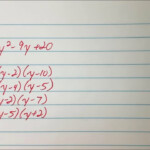 y²-9y+20
y-2)(y-10)
y-4)(y-5)
y-2)(y-7)
y-5)(y+2)